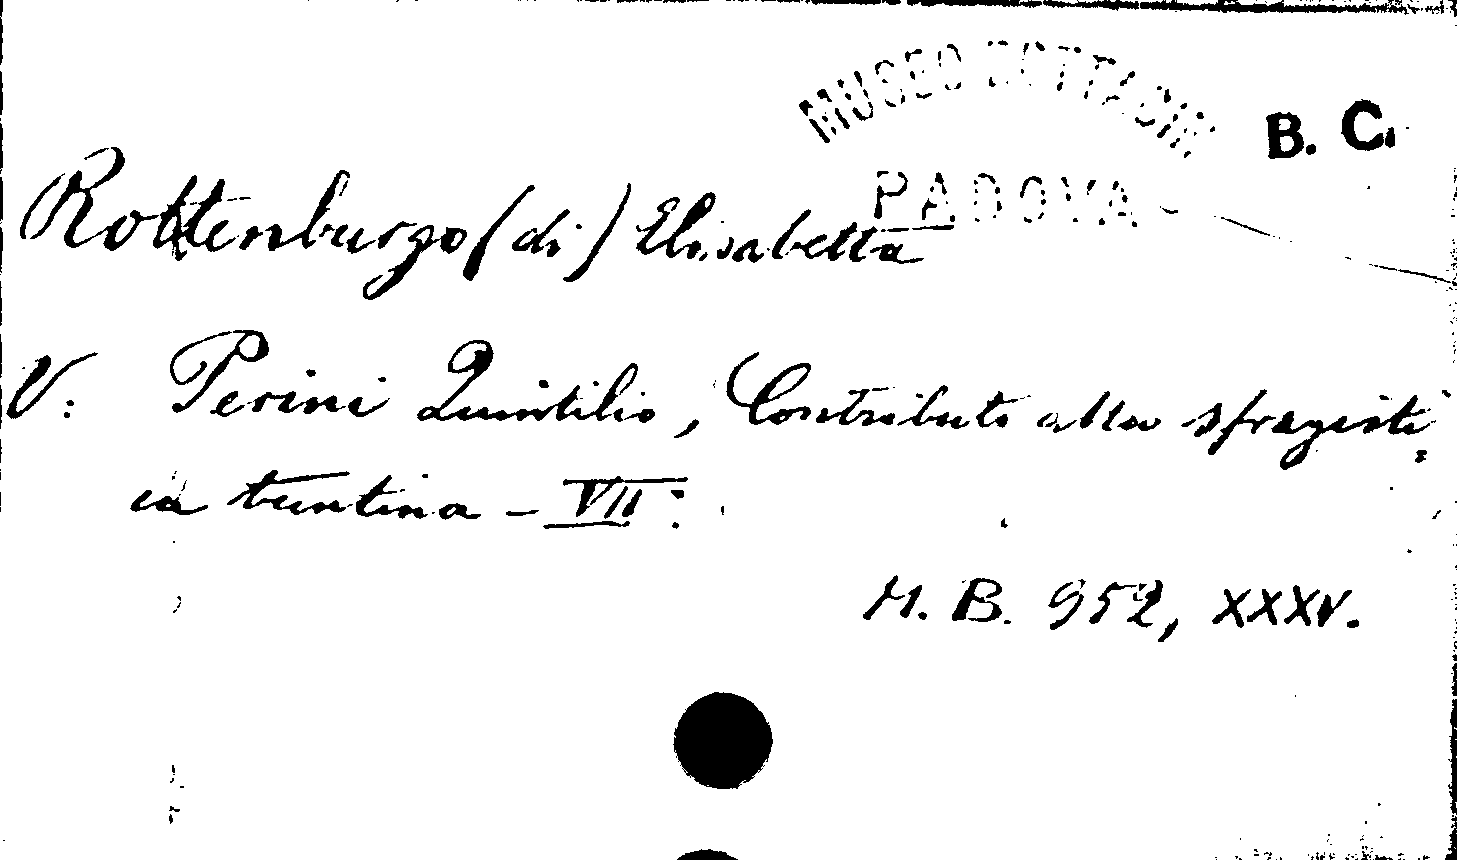 MUSEO BOTTACIN
PADOVA
B. C.
Rottenburgo (di) Elisabetta
V: Perini Quintilio, Contributo alla sfragisti
ca trentina - VII:
M. B. 952, XXXV.